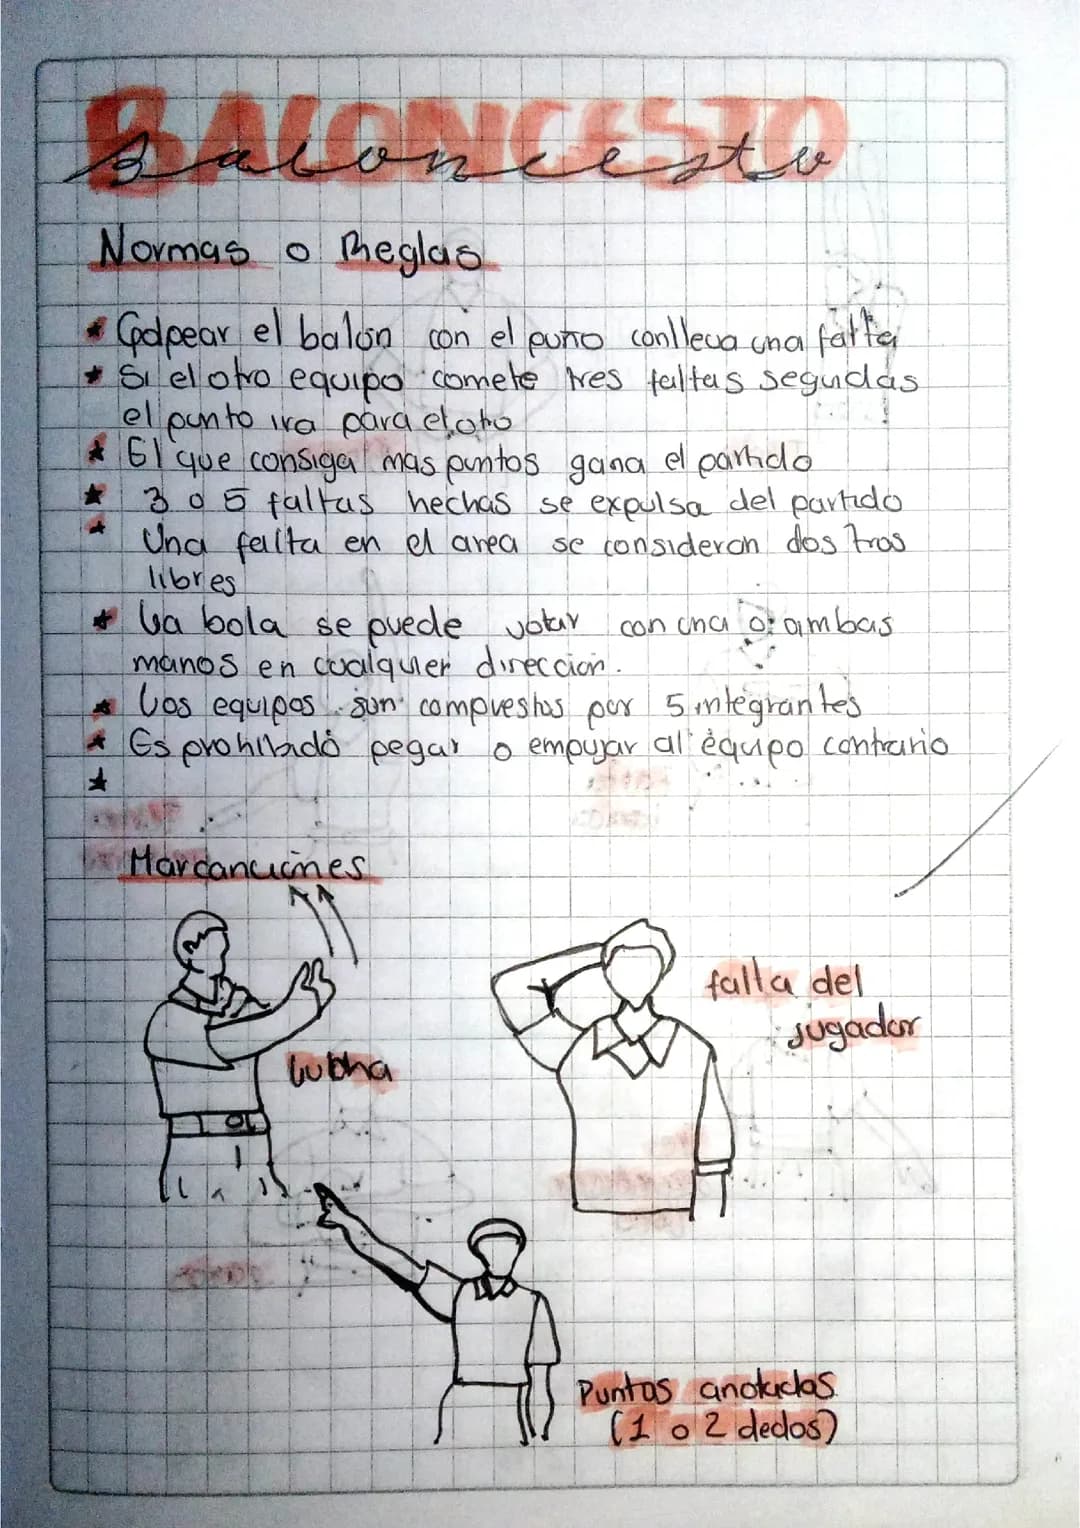 BALONCESTO
Baloncesto
Normas o Reglas
Golpear el balón con el puño conlleva una falta
Si el otro equipo comete tres faltas seguidas
el punto ira para el otro
El que consiga mas puntos gana el partido
3 o 5 faltas hechas se expulsa del partido
Una falta en el area se consideran dos tros
libres
La bola se puede votar con una o ambas
manos en cualquier direccion.
Los equipos son compuestos por 5 integrantes
Es prohibido pegar o empujar al equipo contrario
falta del
jugador
Puntos anotados
(1 o 2 dedos)